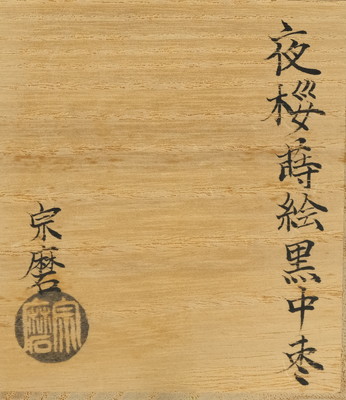 夜桜蒔絵黒中棗
宗磨
宗磨